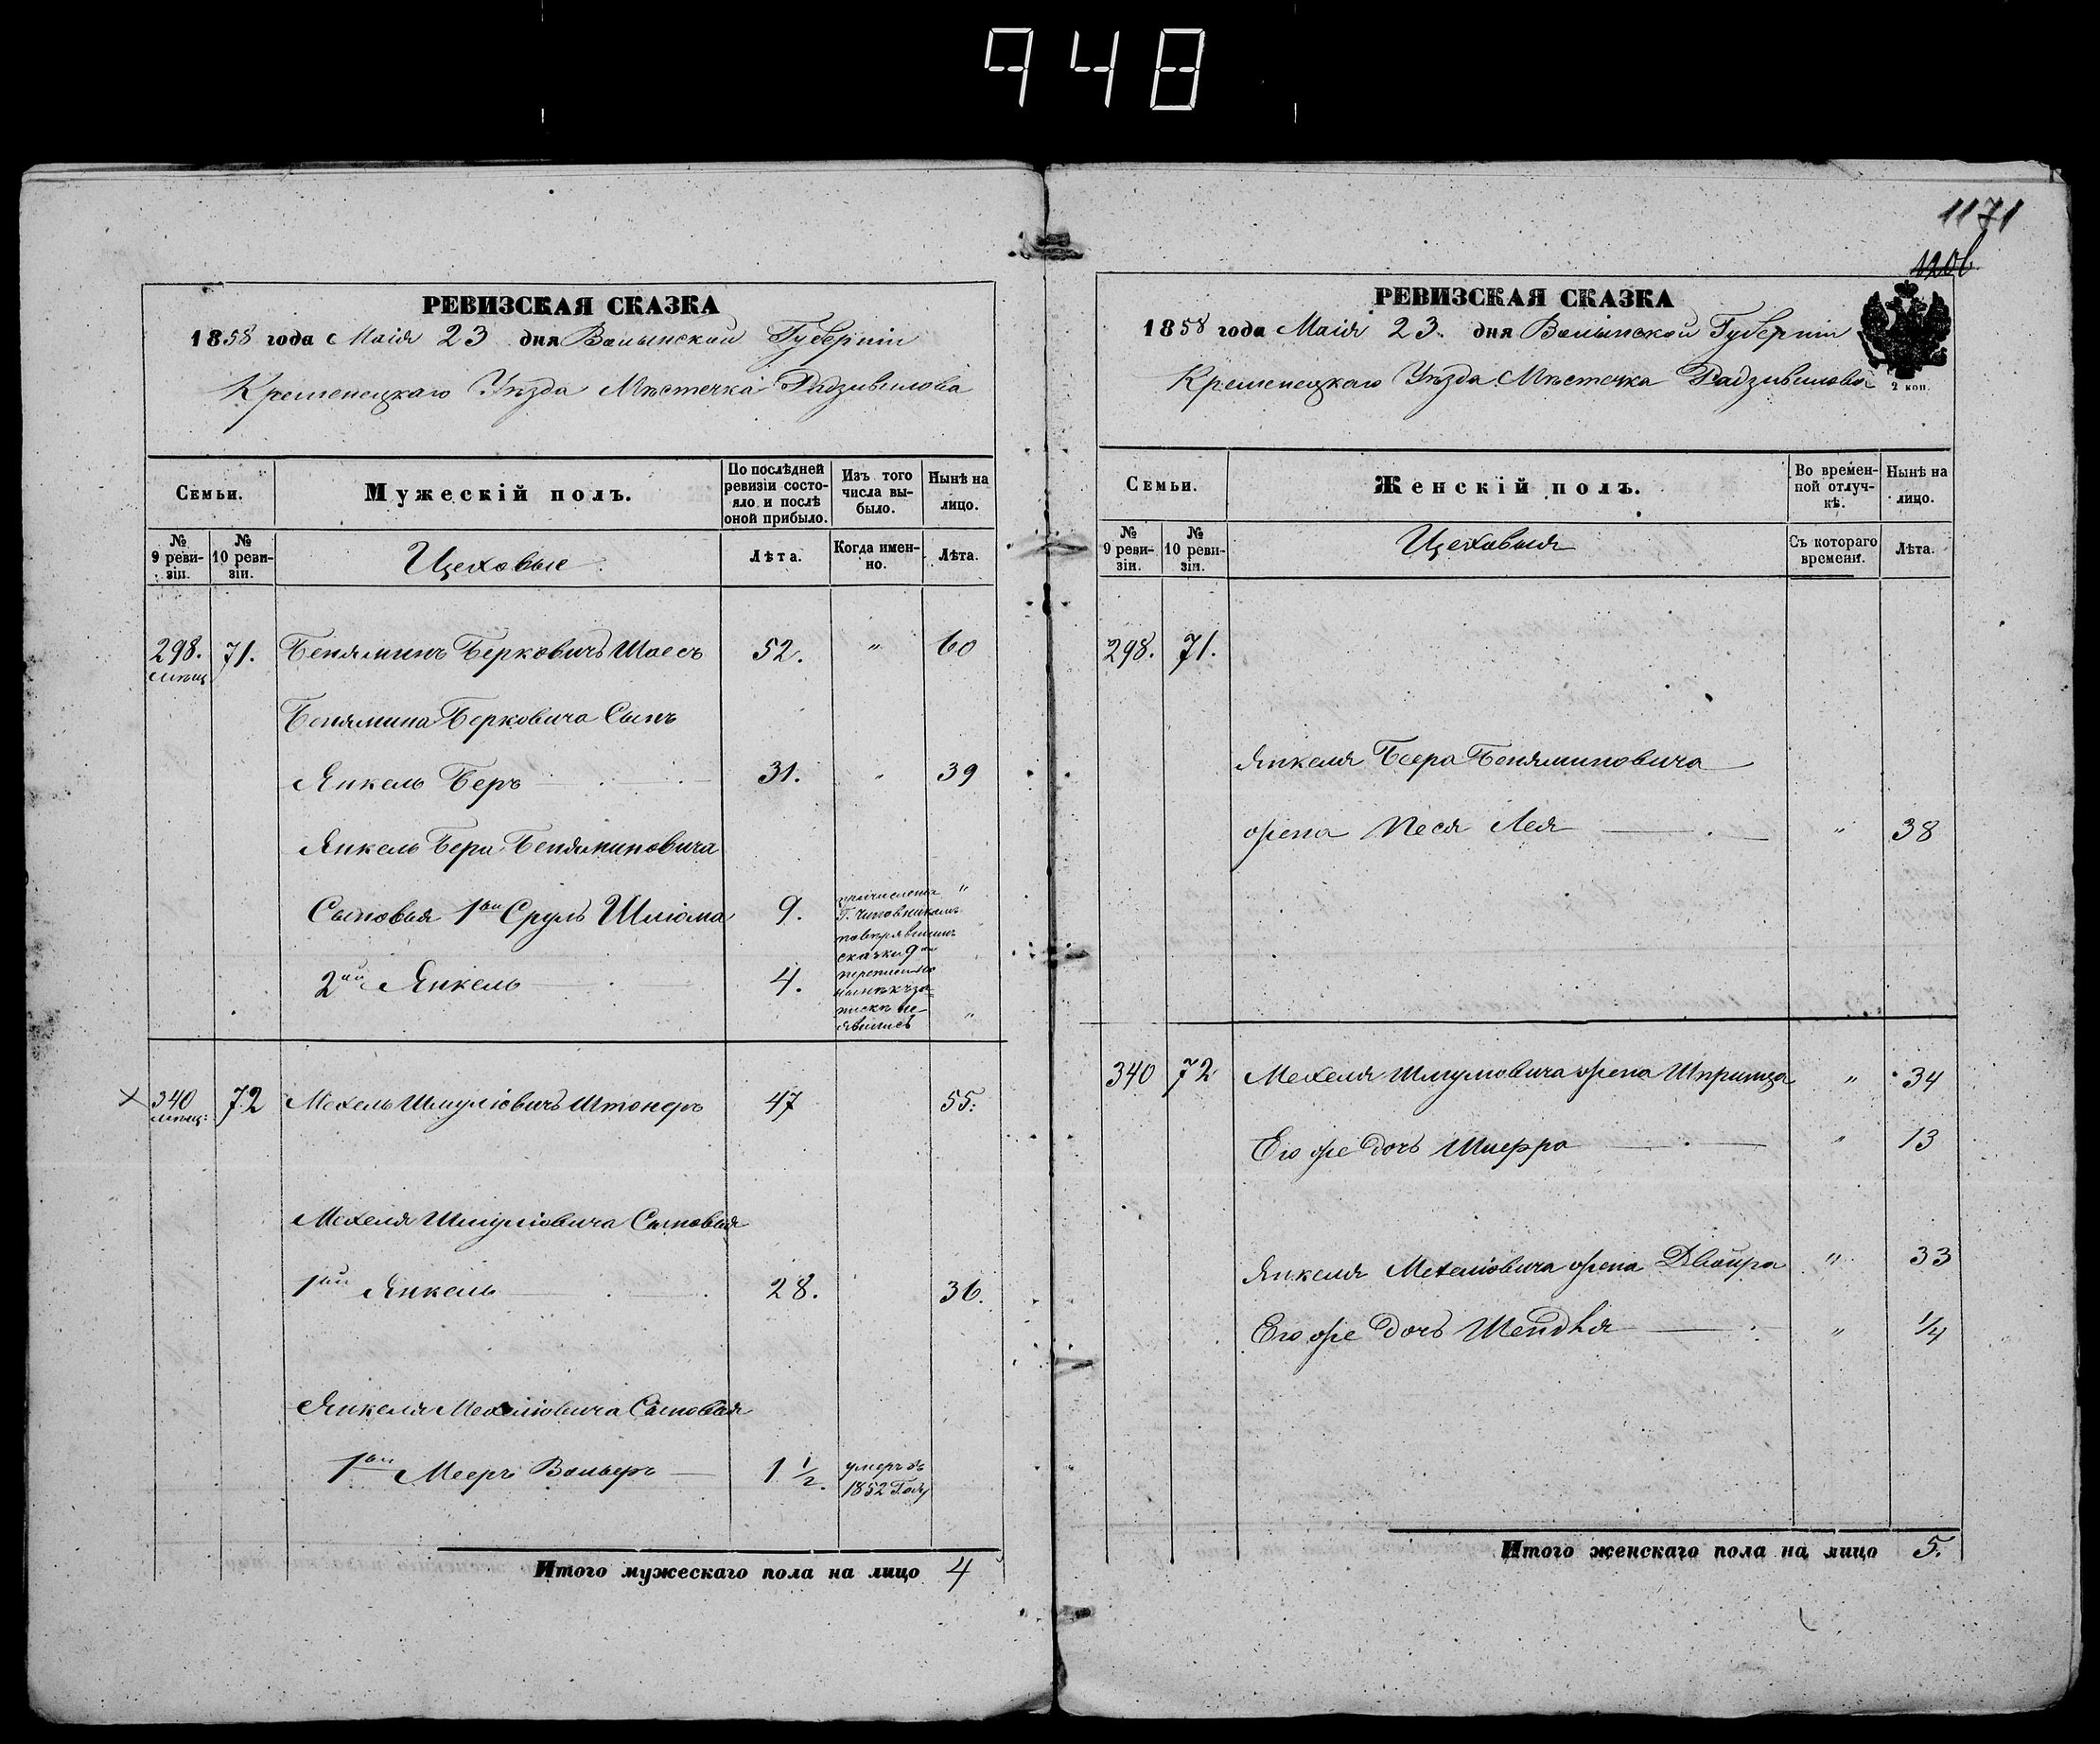 948
РЕВИЗСКАЯ СКАЗКА
1858 года Маія 23 дня Волынской Губерніи
Кременецкаго Уѣзда Мѣстечка Радзивилова
Семьи.
Мужескій полъ.
По послѣдней ревизіи состояло и послѣ оной прибыло.
Изъ того числа выбыло.
Нынѣ на лицо.
№ 9 ревизіи.
№ 10 ревизіи.
Цеховые
Лѣта.
Когда именно.
Лѣта.
298. мѣщ 71. Беняминъ Берковичъ Шаесъ 52. " 60
Бенямина Берковича Сынъ
Янкель Беръ 31. " 39
Янкель Бера Беняминовича
Сыновья 1вый Сруль Шліома 9. "
2ой Янкель 4. "
причислены
Г. чиновникомъ
повѣрявшимъ
сказки 9ой
переписи но
нынѣ къ за-
пискѣ не-
явились
340 мѣщ: 72 Мехель Шмуліовичъ Штонеръ 47 55.
Мехеля Шмуліовича Сыновья
1вый Янкель 28. 36.
Янкеля Мехеліовича Сыновья
1вый Мееръ Вольеръ 1 1/2. умеръ въ
1852 Году
Итого мужескаго пола на лицо 4
1171
1206
РЕВИЗСКАЯ СКАЗКА
1858 года Маія 23. дня Волынской Губерніи
Кременецкаго Уѣзда Мѣстечка Радзивилова
2 коп.
Семьи.
Женскій полъ.
Во временной отлучкѣ.
Нынѣ на лицо.
№ 9 ревизіи.
№ 10 ревизіи.
Цеховыя
Съ котораго времени.
Лѣта.
298. 71.
Янкеля Беера Беняминовича
жена Песя Лея " 38
340 72 Мехеля Шмулювича жена Шпринца " 34
Его же дочь Шперра " 13
Янкеля Мехеліовича жена Двойра " 33
Его же дочь Шендля " 1/4
Итого женскаго пола на лицо 5.